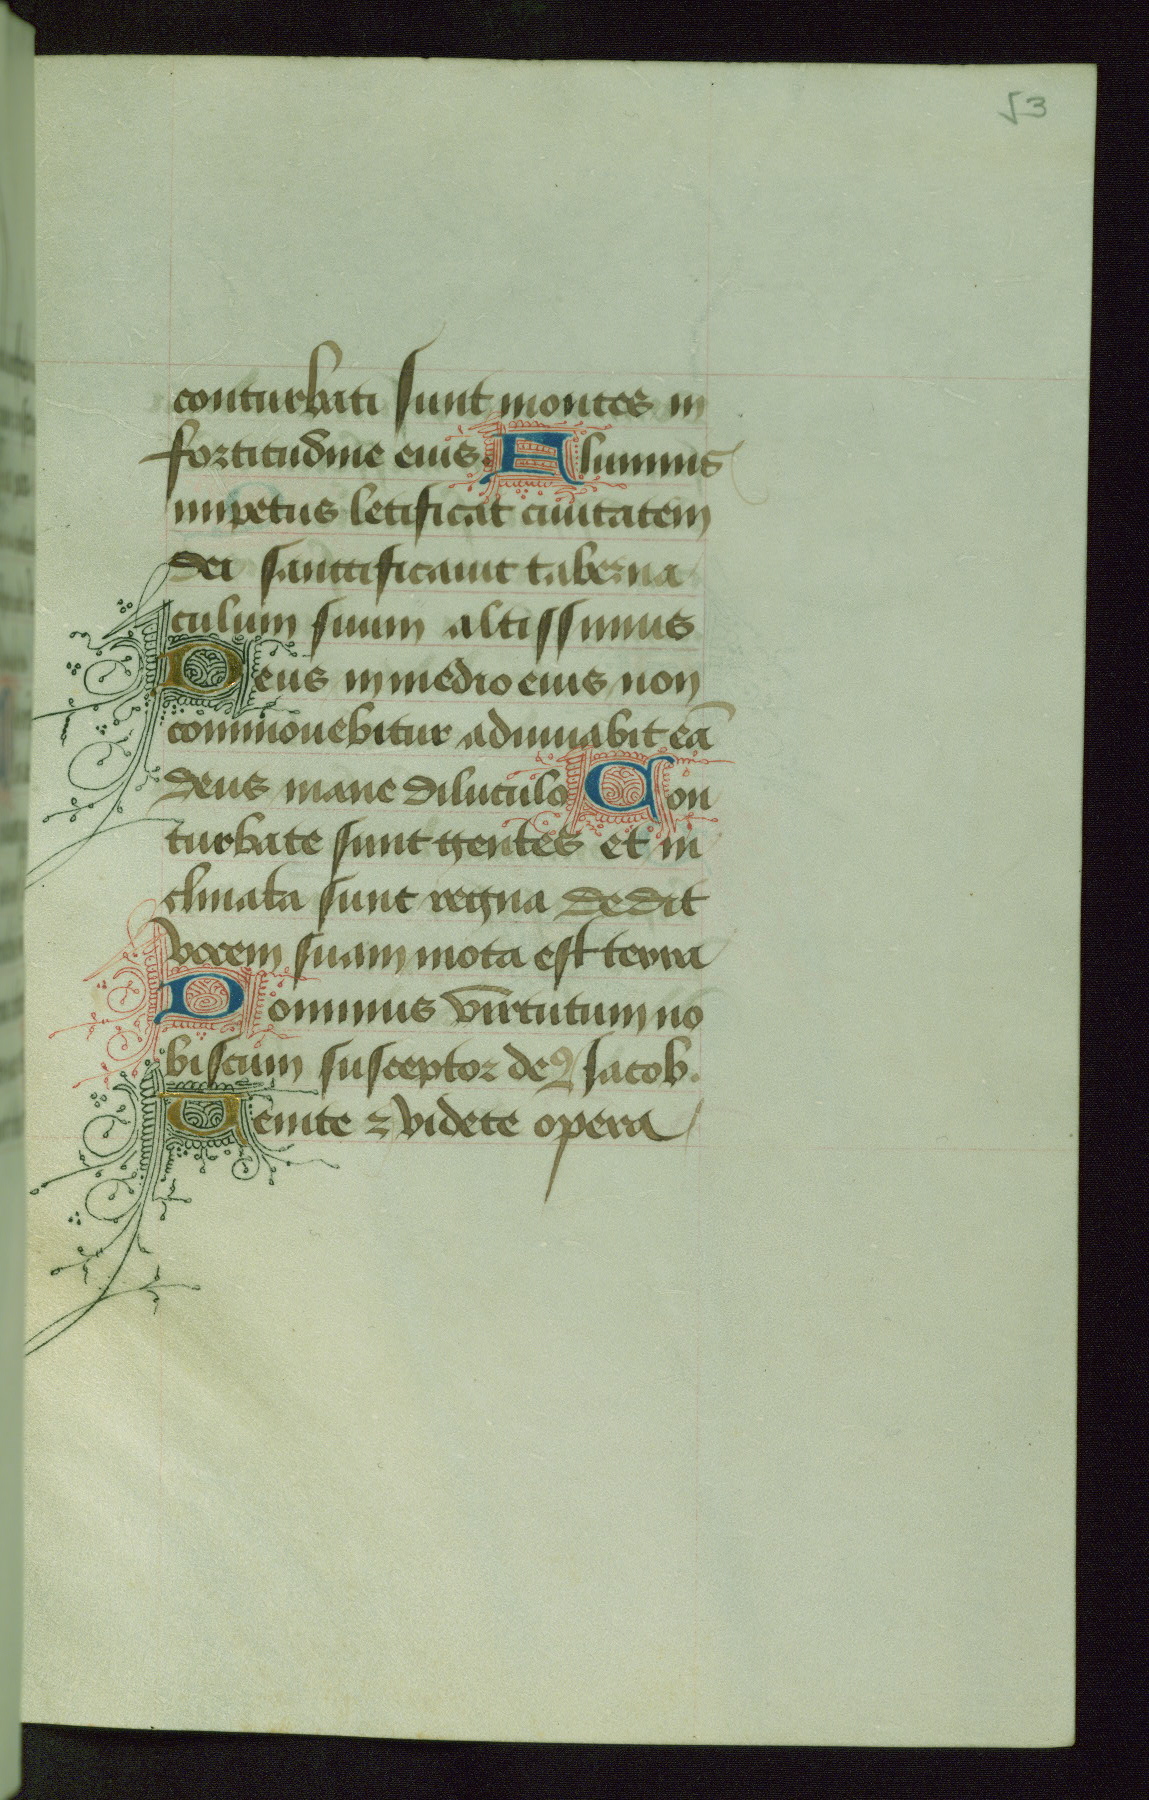 53
conturbati sunt montes in
fortitudine eius Fluminis
impetus letificat ciuitatem
dei sanctificauit taberna
culum suum altissimus
Deus in medio eius non
commouebitur adiuuabit eā
deus mane diluculo Con
turbate sunt gentes et in
clinata sunt regna dedit
vocem suam mota est terra
Dominus virtutum no
biscum susceptor deꝰ Iacob.
Venite ⁊ videte opera